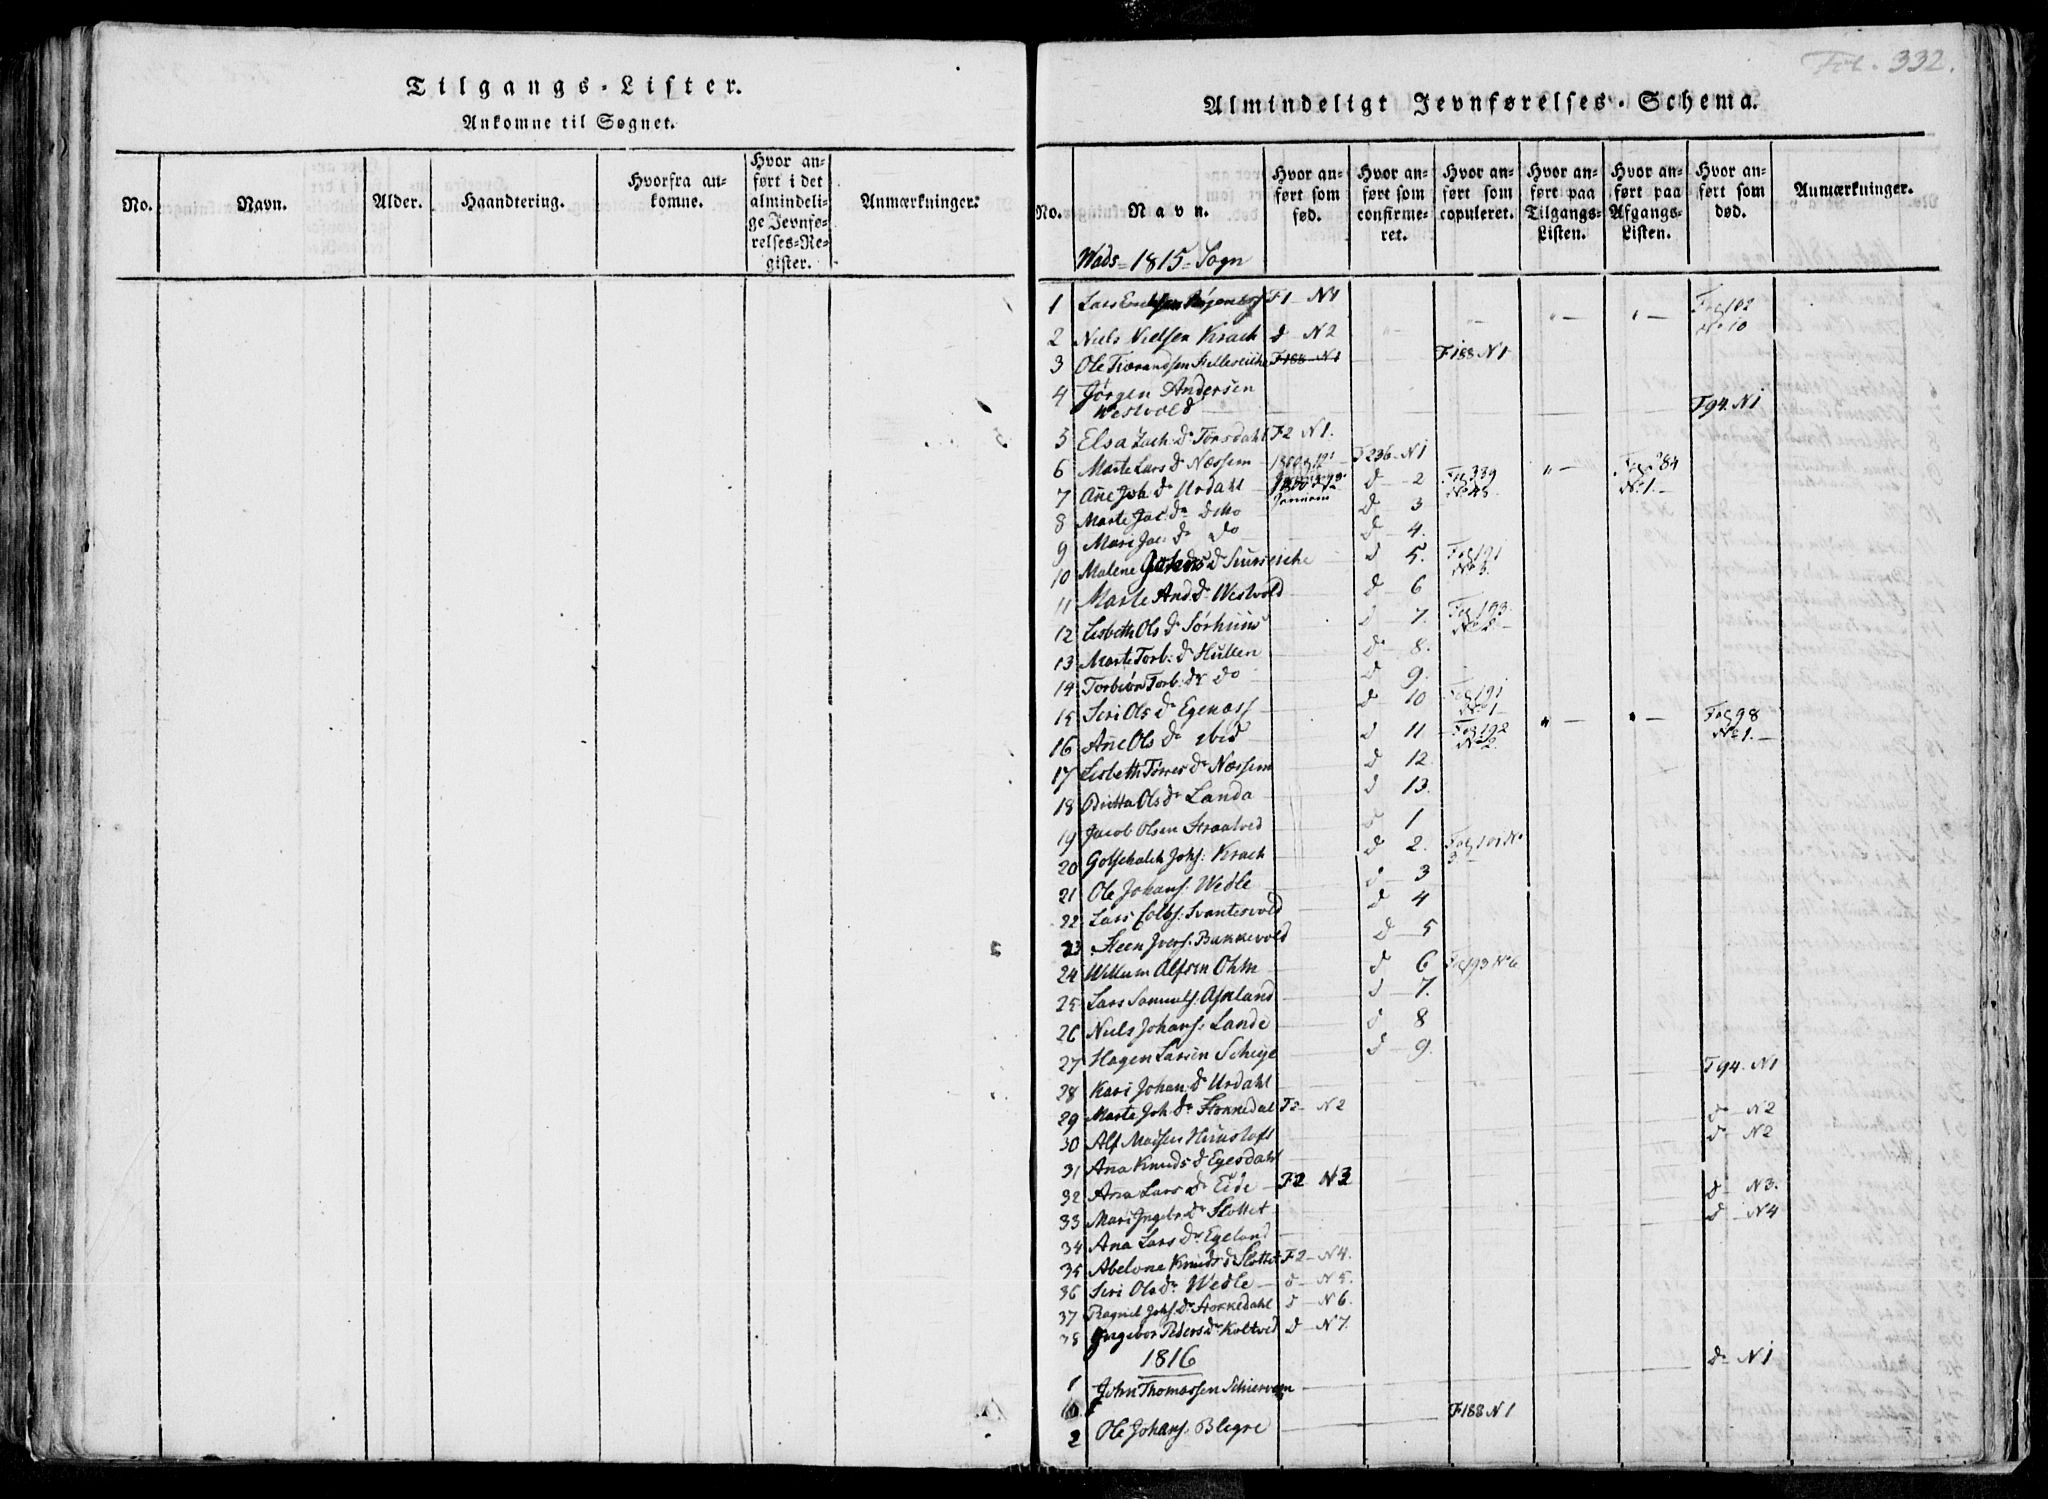 Tilgangs-Lister.
Ankomne til Sognet.
No.
Navn.
Alder.
Haandtering.
Hvorfra an-
komne.
Hvor an-
ført i det
almindeli-
ge Jevnfø-
relses-Re-
gister.
Anmærkninger.
Fol. 332.
Almindeligt Jevnførelses-Schema.
No.
Navn.
Hvor an-
ført som
fød.
Hvor an-
ført som
confirme-
ret.
Hvor an-
ført som
copuleret.
Hvor an-
ført paa
Tilgangs-
Listen.
Hvor an-
ført paa
Afgangs-
Listen.
Hvor an-
ført som
død.
Anmærkninger.
Wads - 1815 - Sogn
1 Lars F1 N1 Fol 102 No 10
2 Niels Nielsen Krach d N2
3 Ole F188 N1 F188 N1
4 Jørgen Andersen
Westvold F94. N1
5 Elsa Zach: Dr Torsdahl F2 N1.
6 Marte Lars Dr Næssem F236. N1
7 Ane Joh: Dr Urdahl d 2 Fol 339 No 45 Fol 284 No 1.
8 Marte Jac: Dr ditto d 3
9 Mari Jac: Dr do d 4.
10 Malene d 5. Fol 191
11 Marte And: Dr Westvold d 6
12 Lisbeth Ols Dr Sørhuus d 7. Fol 193
13 Marte Torb: Dr Hullen d 8.
14 Torbiør Torb: Dr do d 9.
15 Siri Ols Dr Egenæss d 10 Fol 191 No 1
16 Ane Ols Dr ibid d 11 Fol 192 No 2. Fol 98 No 1.
17 Lisbeth Torres Dr Næssem d 12.
18 Britta Ols Dr Landa d 13.
19 Jacob Olsen Straatved d 1
20 Gotschalch Johs: Krach d 2.
21 Ole Johans: Wedle d 3
22 Lars Colbs: Svantesvold d 4
23 Steen Ivers: Bakkevold d 5
24 Willum Alfsen Ohm d 6 Fol 193 No 6
25 Lars Samuels: Aseland d 7.
26 Niels Johans: Lande d 8
27 Hagen Larsen Scheye d 9.
28 Kari Johan: Dr Urdahl F94. N1
29 Marte Joh: Dr Stokkedal F2 N2
30 Alf d N2
31 Ana Knuds Dr Egesdahl d N2
32 Ana Lars Dr Eide F2 N3
33 Mari Ingebr: Dr Slottet d N3.
34 Ana Lars Dr Egeland d N4
35 Abelone Knuds Dr Slottet F2 N4.
36 Siri Ols Dr Wedle d N5.
37 Ragnil Johs: Dr Stokkedahl d N6.
38 Ingebor Peders Dr Koltved d N7.
1816
1 John Thomassen Schiervem d N1
2 Ole Johans: Blegre F188 N1